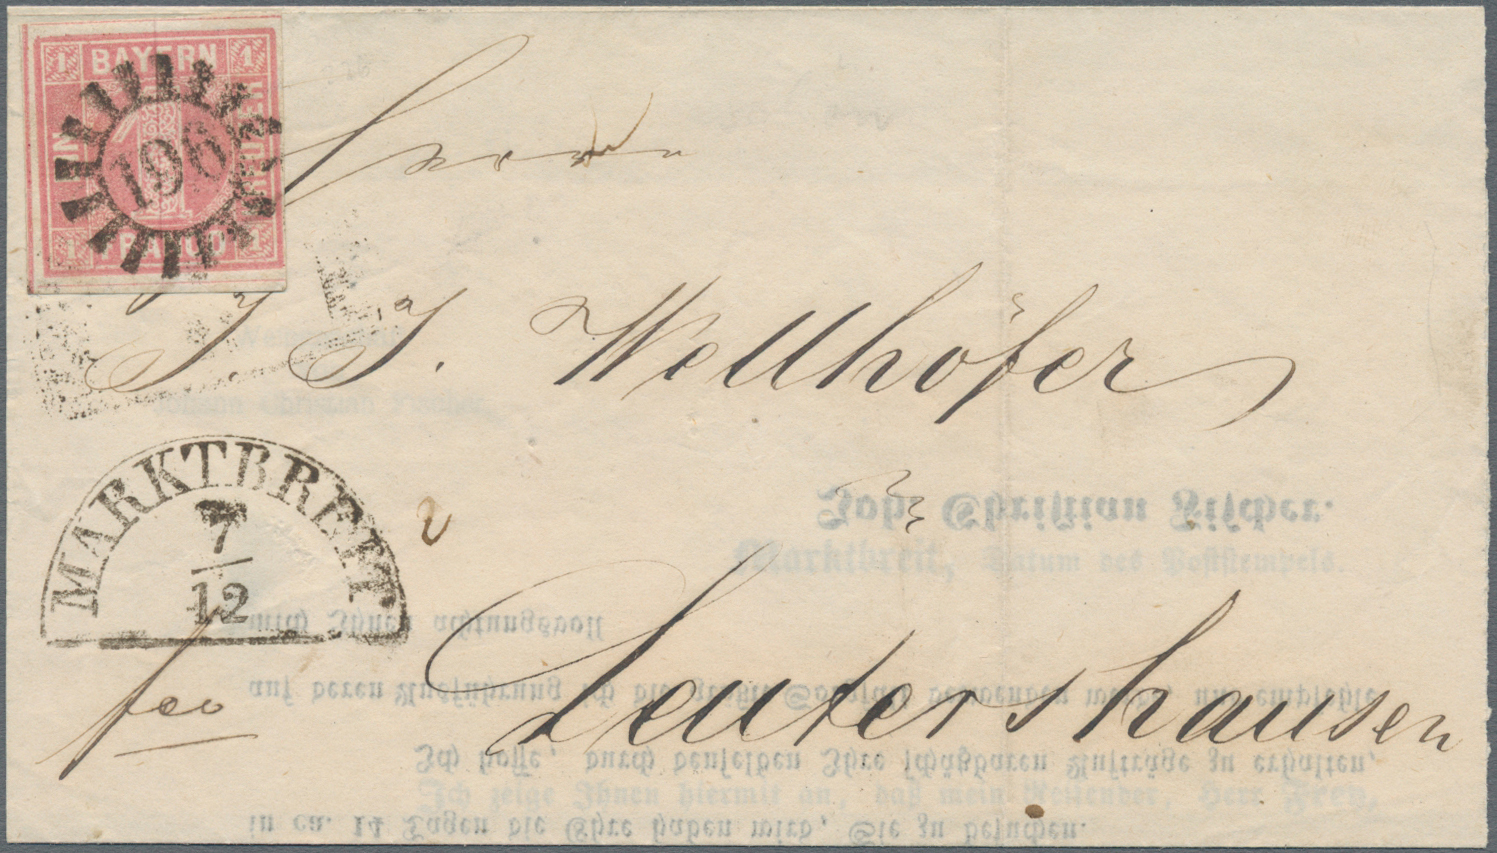 1 BAYERN 1
EIN
KREUZER
196
1 FRANCO 1
Herrn
J. J. Wellhöfer
MARKTBREIT
7
12
in
fco
Leutershausen
Johann Christian Fischer,
Joh. Christian Fischer.
Marktbreit, Datum des Poststempels.
mich Ihnen achtungsvoll
auf deren Ausführung ich die größte Sorgfalt verwenden werde, und empfehle
Ich hoffe, durch denselben Ihre schätzbaren Aufträge zu erhalten,
Ich zeige Ihnen hiermit an, daß mein Reisender, Herr Frey,
in ca. 14 Tagen die Ehre haben wird, Sie zu besuchen.